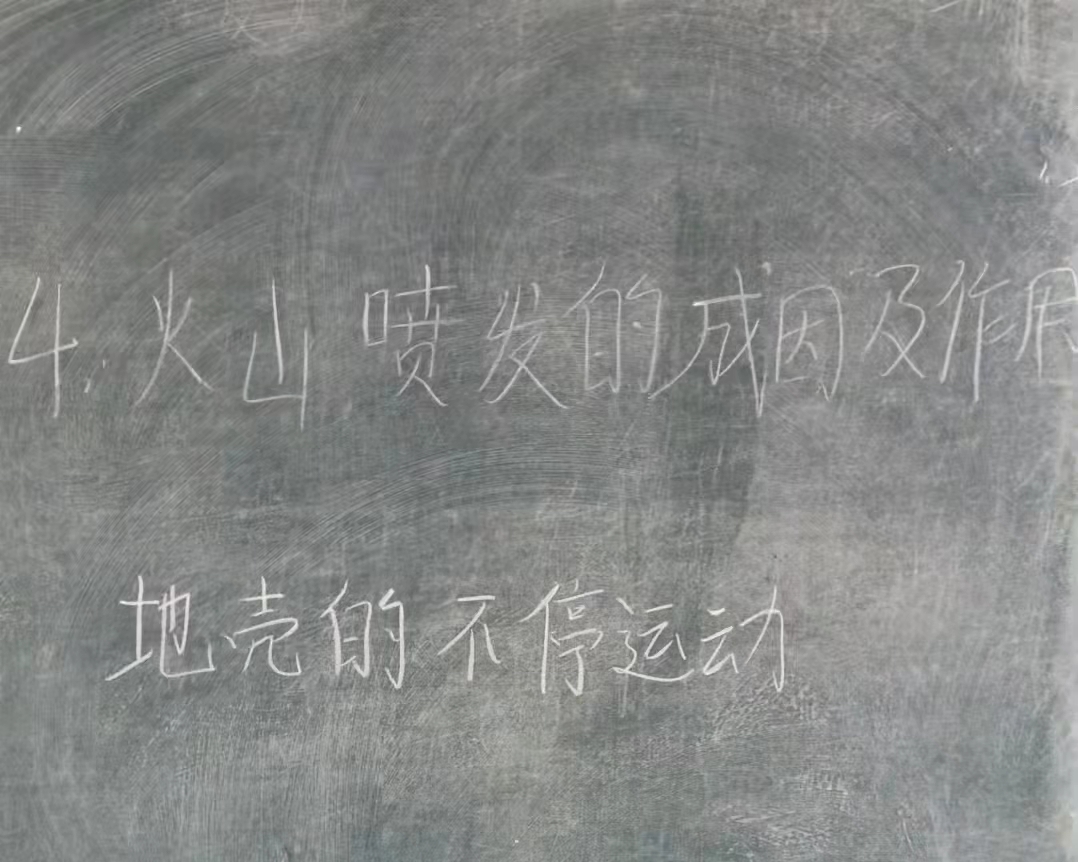 4.火山喷发的成因及作用
地壳的不停运动